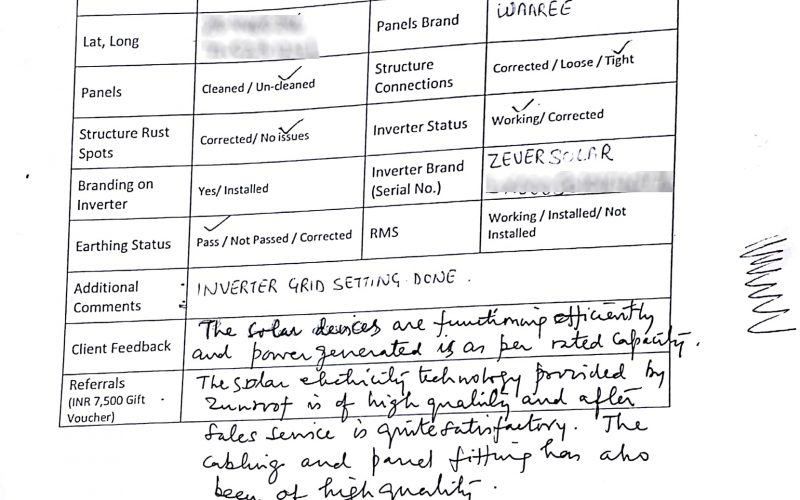 Lat, Long
Panels Brand
WAAREE
Panels
Cleaned / Un-cleaned
Structure
Connections
Corrected / Loose / Tight
Structure Rust
Spots
Corrected/ No issues
Inverter Status
Working/ Corrected
Branding on
Inverter
Yes/ Installed
Inverter Brand
(Serial No.)
ZEVERSOLAR
Earthing Status
Pass / Not Passed / Corrected
RMS
Working / Installed/ Not
Installed
Additional
Comments
INVERTER GRID SETTING DONE .
Client Feedback
The solar devices are functioning efficiently
and power generated is as per rated capacity.
Referrals
(INR 7,500 Gift
Voucher)
The solar electricity technology provided by
Zunroof is of high quality and after
sales service is quite satisfactory. The
cabling and panel fitting has also
been of high quality.